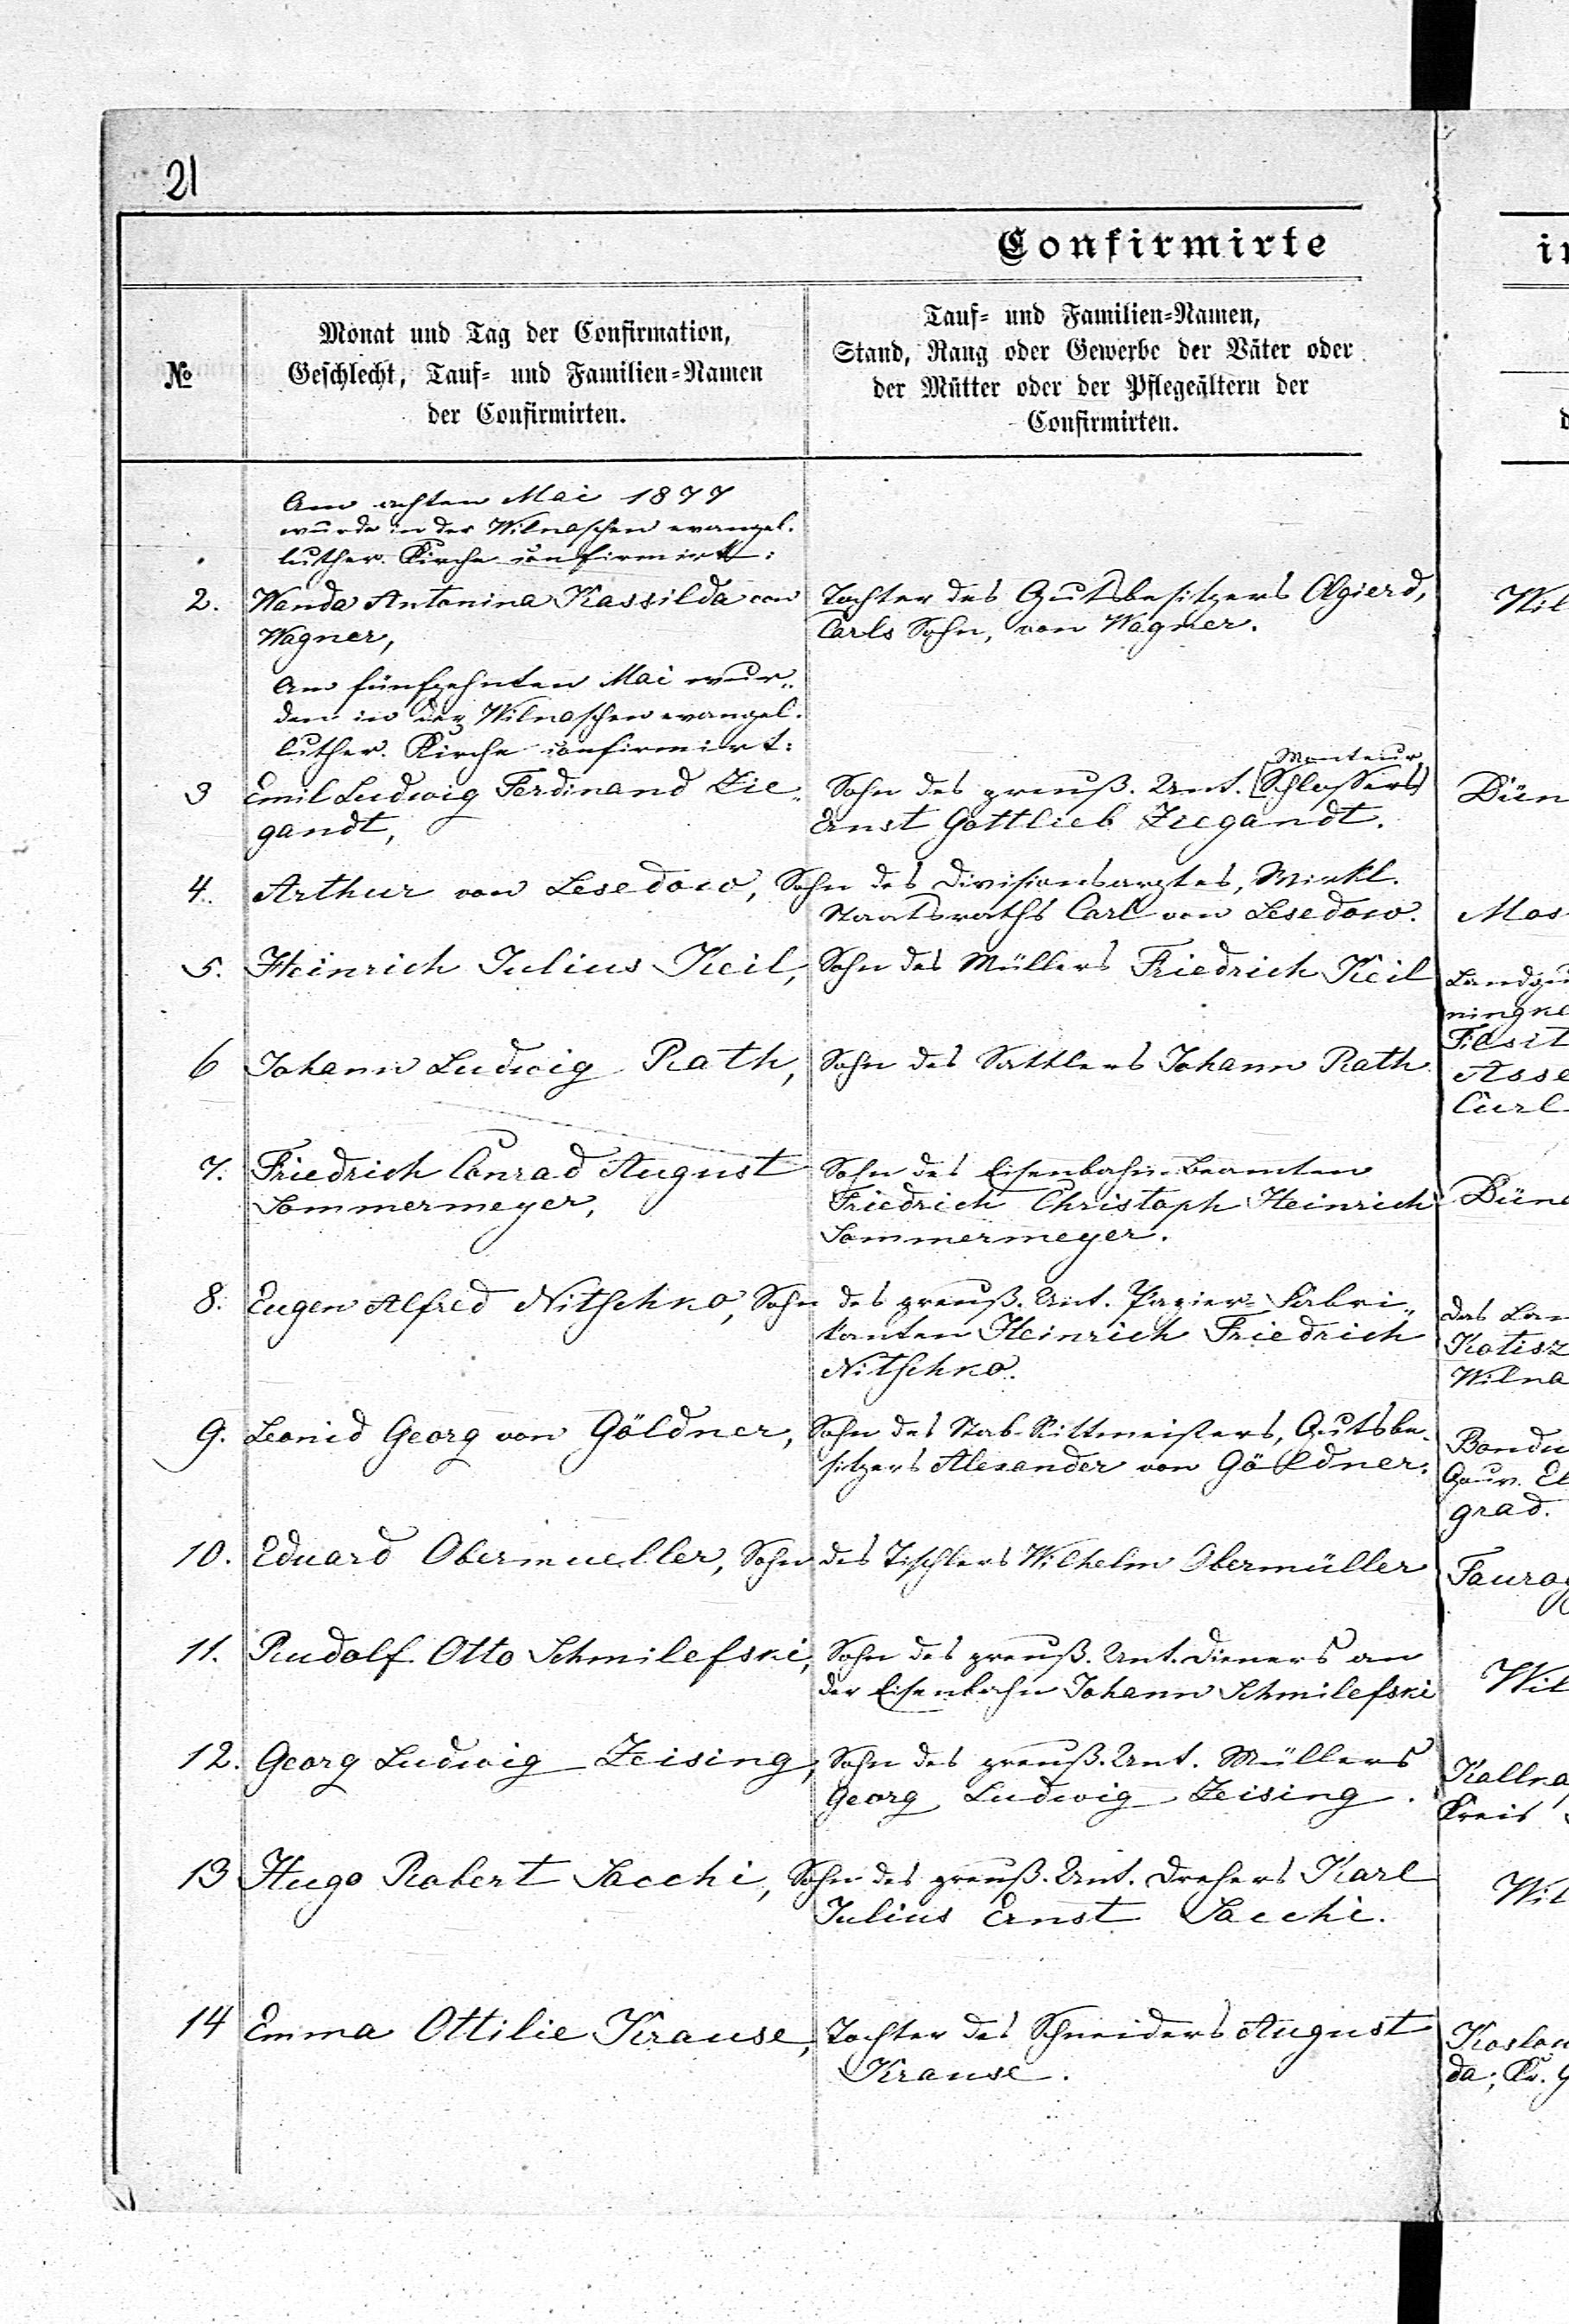 21
Confirmirte
№
Monat und Tag der Confirmation,
Geschlecht, Tauf= und Familien=Namen
der Confirmirten.
Tauf= und Familien=Namen,
Stand, Rang oder Gewerbe der Väter oder
der Mütter oder der Pflegeältern der
Confirmirten.
Am achten Mai 1877
wurde in der Wilnaschen evangel.
luther. Kirche confirmirt:
2. Wanda Antonina Kassilda von
Wagner,
Tochter des Gutsbesitzers Olgierd,
Carls Sohn, von Wagner.
Wil
Am fünfzehnten Mai wur„
den in der Wilnaschen evangel.
luther. Kirche confirmirt:
3 Emil Ludwig Ferdinand Zie„
gandt,
Monteur
Sohn des preuß. Unt. (Schlossers)
Ernst Gottlieb Ziegandt.
Dün
4. Arthur von Lesedow, Sohn des Divisionsarztes, Wirkl.
Staatsraths Carl von Lesedow.
Mos
5. Heinrich Julius Keil, Sohn des Müllers Friedrich Keil
Landgu
ningke
6 Johann Ludwig Rath, Sohn des Sattlers Johann Rath
Asse
Curl
7. Friedrich Conrad August
Sommermeyer,
Sohn des Eisenbahn-Beamten
Friedrich Christoph Heinrich
Sommermeyer.
Düna
8. Eugen Alfred Nitschko, Sohn des preuß. Unt. Papier=Fabri„
kanten Heinrich Friedrich
Nitschko.
das Lan
Kotisz
Wilna
9. Leonid Georg von Göldner, Sohn des Stab-Rittmeisters, Gutsbe„
sitzers Alexander von Göldner.
Bondu
Gouv. El
grad.
10. Eduard Obermueller, Sohn des Tischlers Wilhelm Obermüller
Taurog
11. Rudolf Otto Schmilefski, Sohn des preuß. Unt. Dieners an
der Eisenbahn Johann Schmilefski
Wil
12. Georg Ludwig Zeising, Sohn des preuß. Unt. Müllers
Georg Ludwig Zeising.
Kallna
Kreis
13 Hugo Robert Sacchi, Sohn des preuß. Unt. Drehers Karl
Julius Ernst Sacchi.
Wil
14 Emma Ottilie Krause, Tochter des Schneiders August
Krause.
Koslow
da; Kr. G